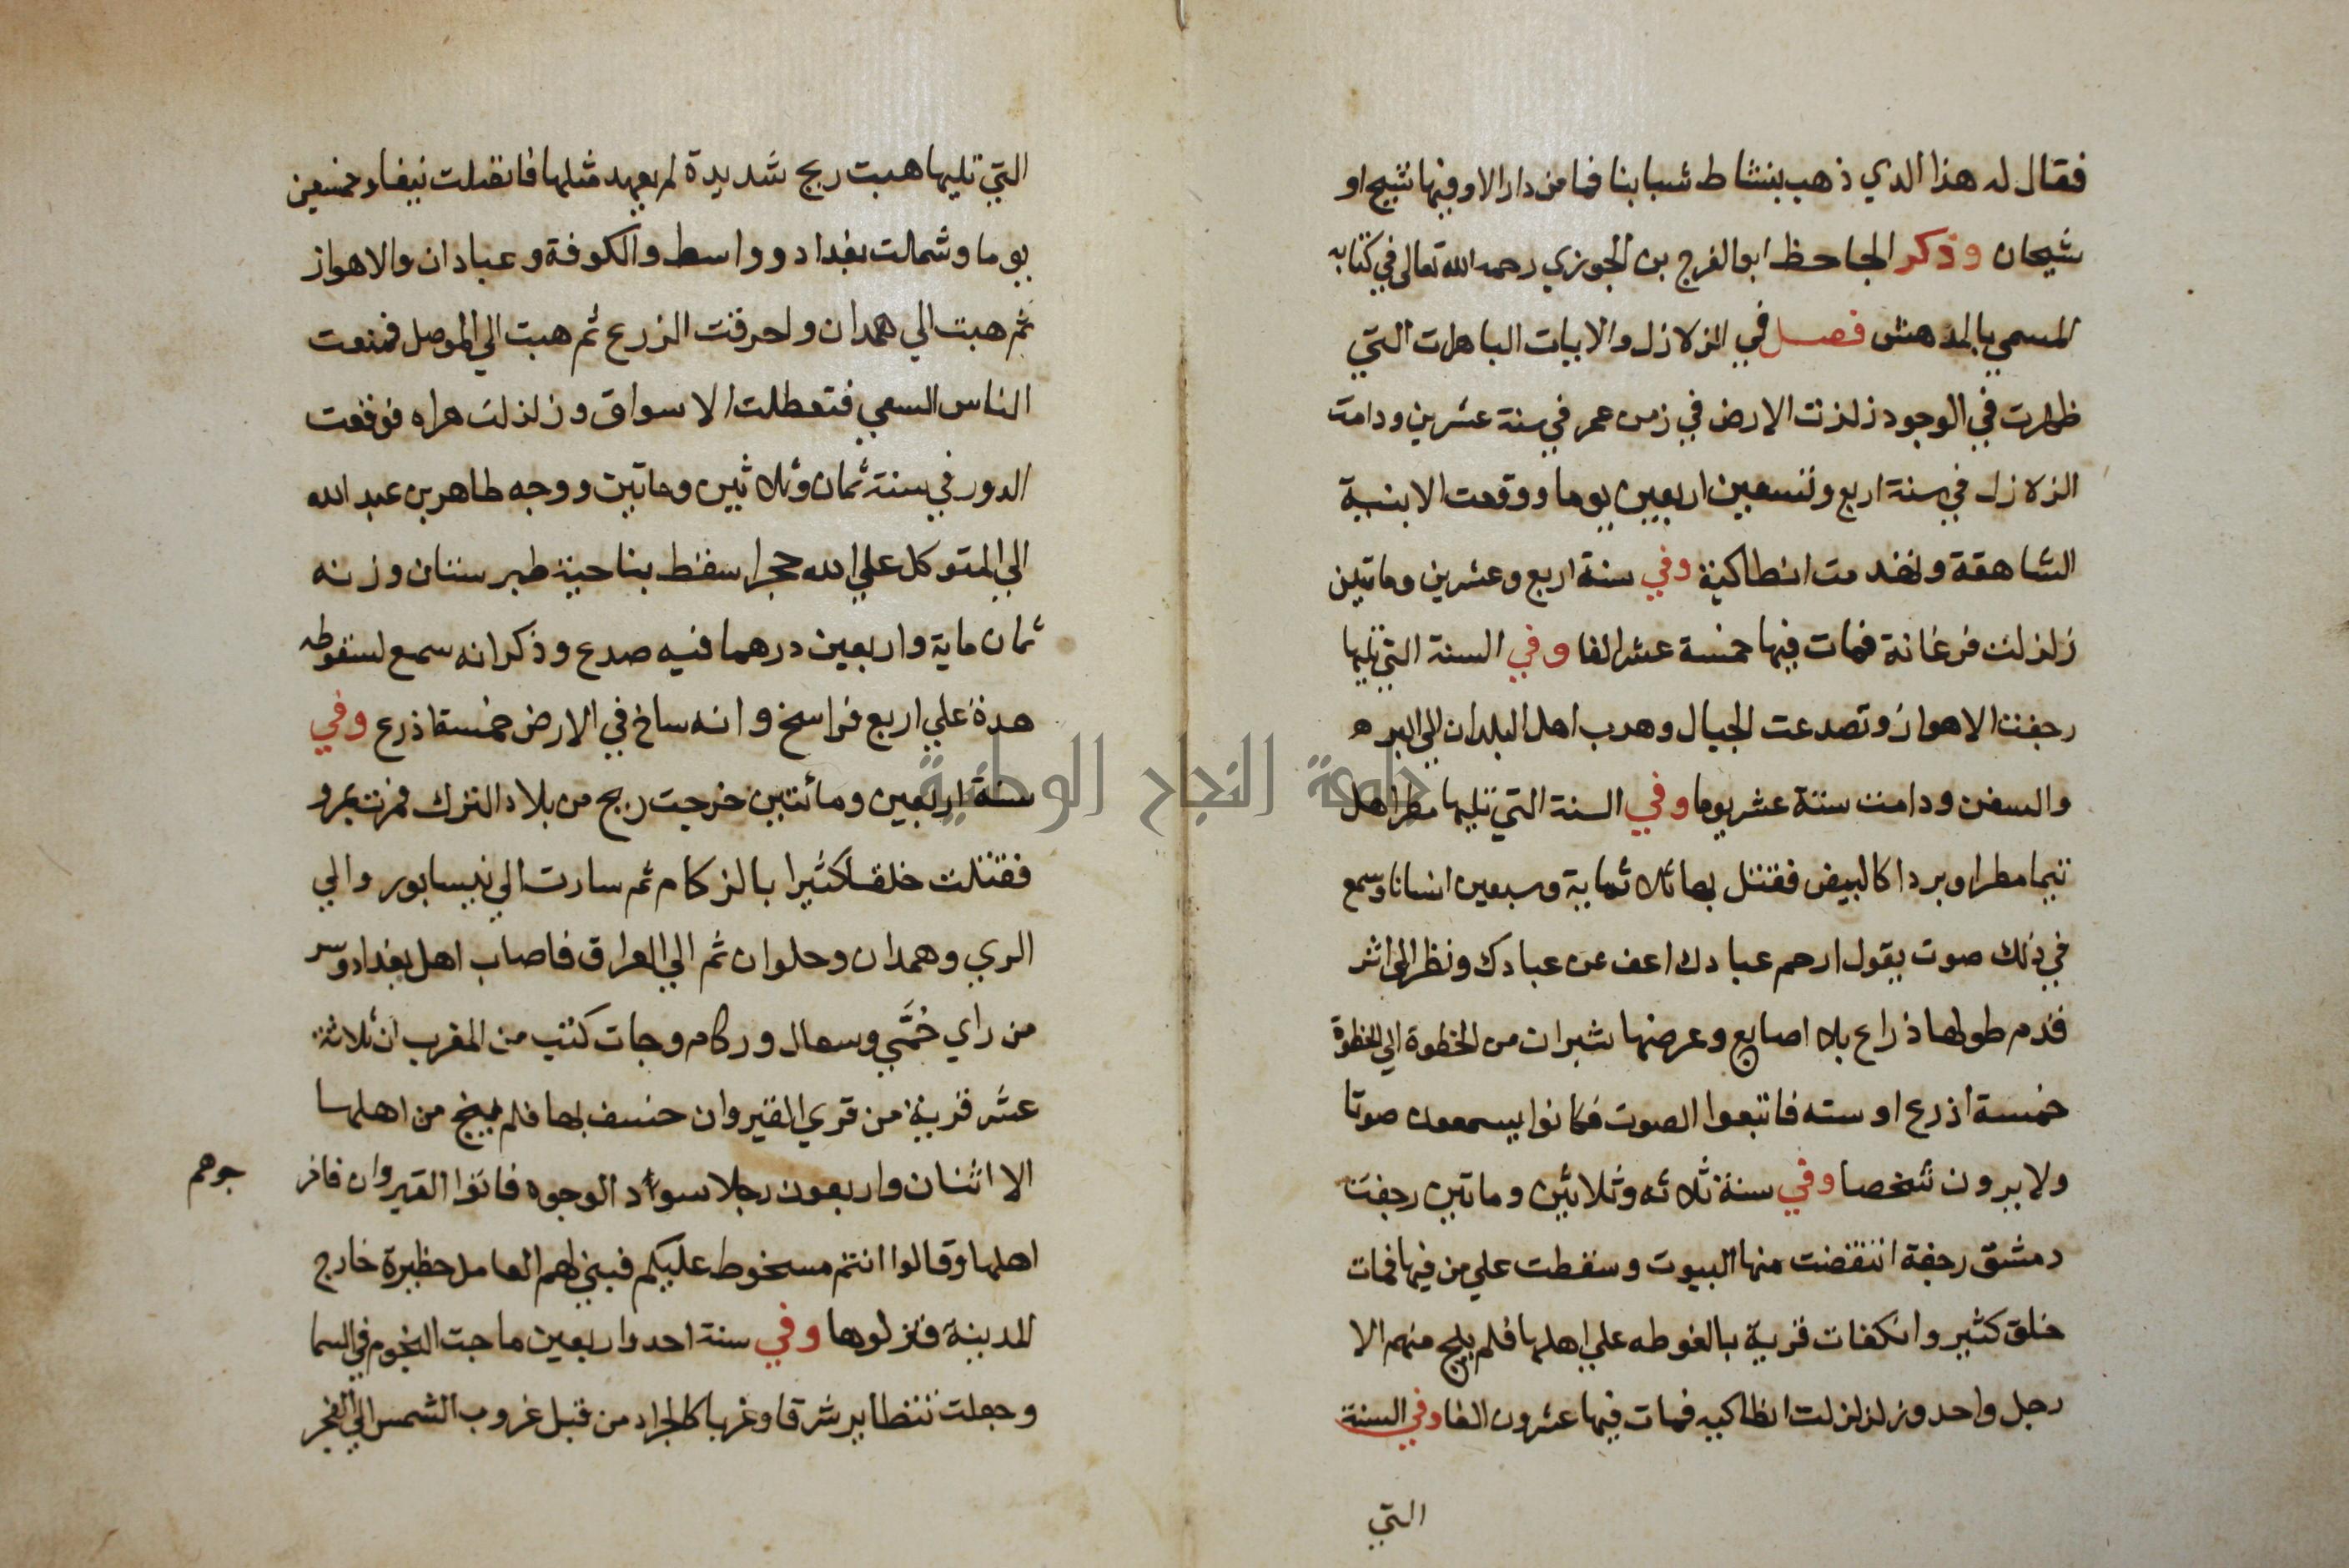 فقال له هذا الدي ذهب بنشاط شبابنا فما من دار الا وفيها شيخ او
شيحان وذكر الحاحظ ابو الفرج بن الجوزي رحمه الله تعالى في كتابه
المسمي بالمدهش فصل في الزلازل والايات الباهرات التي
ظهرت في الوجود زلزت الارض في زمن عمر في سنة عشرين ودامت
الزلازل في سنة اربع وتسعين اربعين يوما ووقعت الابنية
الشاهقة وتهدمت انطاكية وفي سنة اربع وعشرين وماتين
زلزلت فرغانة فمات فيها خمسة عشر الفا وفي السنة التي تليها
رجفت الاهواز وتصدعت الجبال وهرب اهل البلدان الي البر
والسفن ودامت ستة عشر يوما وفي السنة التي تليها مطر اهل
تيما مطرا وبردا كالبيض فقتل بها ثلاثماية وسبعين انسانا وسمع
في ذلك صوت يقول ارحم عبادك اعف عن عبادك ونظر الى اثر
قدم طولها ذراع بلا اصابع وعرضها شبران من الخطوة الي الخطوة
خمسة اذرع او سته فاتبعوا الصوت فكانوا يسمعون صوتا
ولا يرون شخصا وفي سنة ثلاثه وثلاثين وماتين رجفت
دمشق رجفة انتقضت منها البيوت وسقطت علي من فيها فمات
خلق كثير وانكفات قرية بالغوطه علي اهلها فلم ينج منهم الا
رجل واحد وزلزلزلت انطاكيه فمات فيها عشرون الفا وفي السنة
التي
التي تليها هبت ريح شديدة لم يعهد مثلها فاتصلت نيفا وخمسين
يوما وشملت بغداد وواسط والكوفة وعبادان والاهواز
ثم هبت الي همدان واحرقت الزرع ثم هبت الي الموصل فمنعت
الناس السعي فتعطلت الاسواق وزلزلت هراه فوقعت
الدور في سنة ثمان وثلاثين وماتين ووجه طاهر بن عبد الله
الي المتوكل علي الله حجرا سقط بناحية طبرستان وزنه
ثمان ماية واربعين درهما فيه صدع وذكر انه سمع لسقوطه
هدة علي اربع فراسخ وانه ساخ في الارض خمسة اذرع وفي
سنة اربعين ومائتين خرجت ريح من بلاد الترك فمرت بمرو
فقتلت خلقا كثيرا بالزكام ثم سارت الي نيسابور والي
الري وهمدان وحلوان ثم الي العراق فاصاب اهل بغداد وسر
من راي حُمَّي وسعال وركام وجات كتب من المغرب ان ثلاثة
عشر قرية من قري القيروان خسف بها فلم ينج من اهلها
الا اثنان واربعون رجلا سواد الوجوه فاتوا القيروان فاخر
جوهم
اهلها وقالوا انتم مسخوط عليكم فبني لهم العامل حظيرة خارج
المدينة فنزلوها وفي سنة احد واربعين ماجت النجوم في السما
وجعلت تتطاير شرقا وغربا كالجراد من قبل غروب الشمس الي الفجر
جامعة النجاح الوطنية